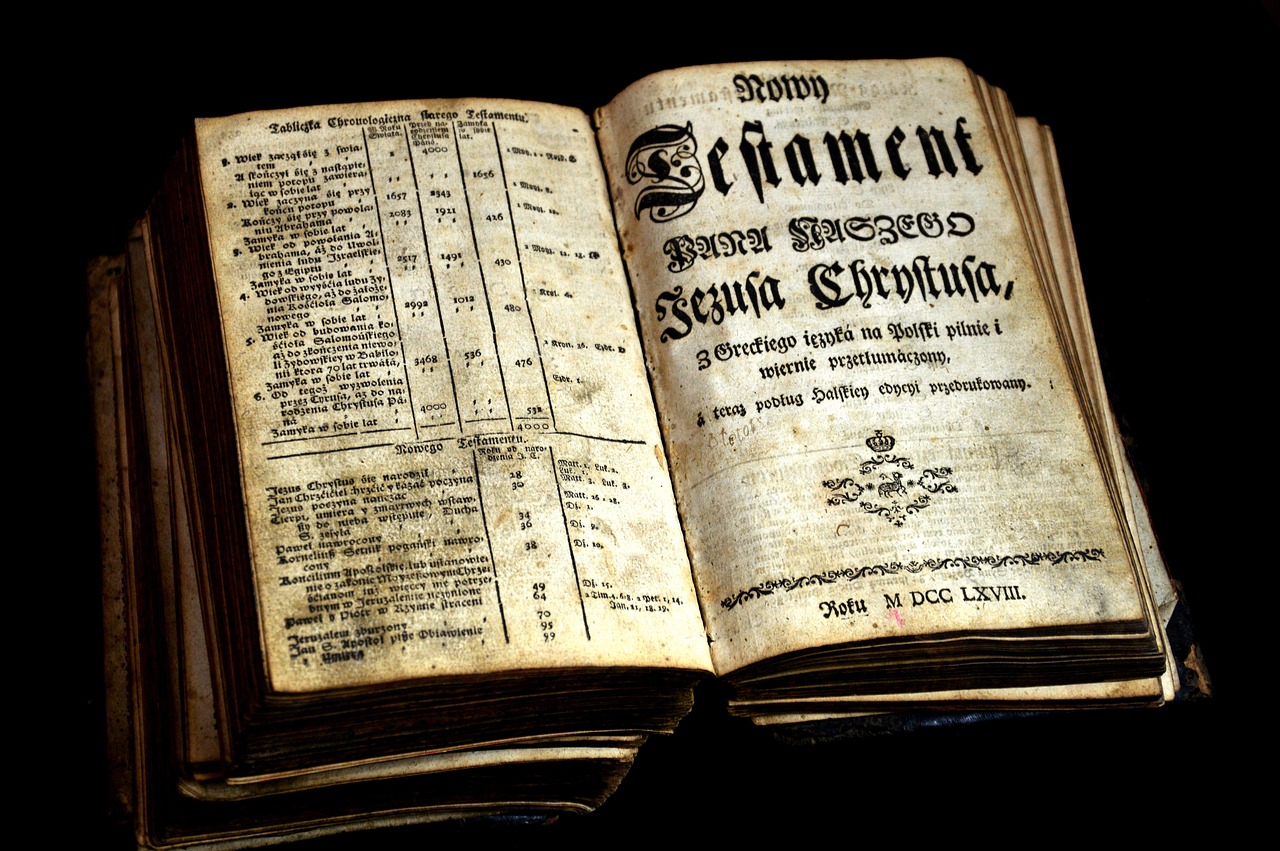 Tabliczka Chronologiczna starego Testamentu.
W Roku Swiata.
Przed narodzeniem Chrystusa Pana.
Zamyka w sobie lat.
1. Wiek zaczął się z świa-
tem 1 4000 1 Moy. 1
A skończył się z nastąpie-
niem potopu zawiera-
iąc w sobie lat 1656
2. Wiek zaczyna się przy
końcu potopu 1657 2343
Kończy się przy powoła-
niu Abrahama 2083 1921
Zamyka w sobie lat 426
3. Wiek od powołania A-
brahama, aż do Uwol-
nienia ludu Izraelskie-
go z Egiptu 2517 1491
Zamyka w sobie lat 430
4. Wiek od wyyścia ludu Ży-
dowskiego, aż do założe-
nia Kościoła Salomo-
nowego 2992 1012
Zamyka w sobie lat 480
5. Wiek od budowania ko-
ścioła Salomońskiego
aż do zkończenia niewo-
li Żydowskiey w Babilo-
nii ktora 70 lat trwała, 3468 536
Zamyka w sobie lat 476
6. Od tegoż wyzwolenia
przez Cyrusa, aż do na-
rodzenia Chrystusa Pa-
na 4000
Zamyka w sobie lat 532
4000
Nowego Testamentu.
Roku od naro-
dzenia J. C.
Jezus Chrystus się narodził
Jan Chrzciciel chrzcić y kazać poczyna 28
Jezus poczyna nauczać 30
Cierpi, umiera y zmartwych wstaw-
szy do nieba wstępuie, Ducha
S. zsyła 34
Paweł nawrocony 36
Korneliusz Setnik pogański nawro-
cony 38
Koncilium Apostolskie lub ustanowie-
nie o zakonie Moyżeszowym Chrze-
ścianom iuż więcey nie potrze-
bnym w Jeruzalemie uczynione 49
Paweł y Piotr w Rzymie straceni 64
Jeruzalem zburzony 70
Jan S. Apostoł pisze Obiawienie 95
y umiera 99
Nowy
Testament
PANA NASZEGO
Jezusa Chrystusa,
Z Greckiego ięzyká na Polski pilnie i
wiernie przetłumáczony,
á teraz podług Halskiey edycyi przedrukowany.
Roku M DCC LXVIII.